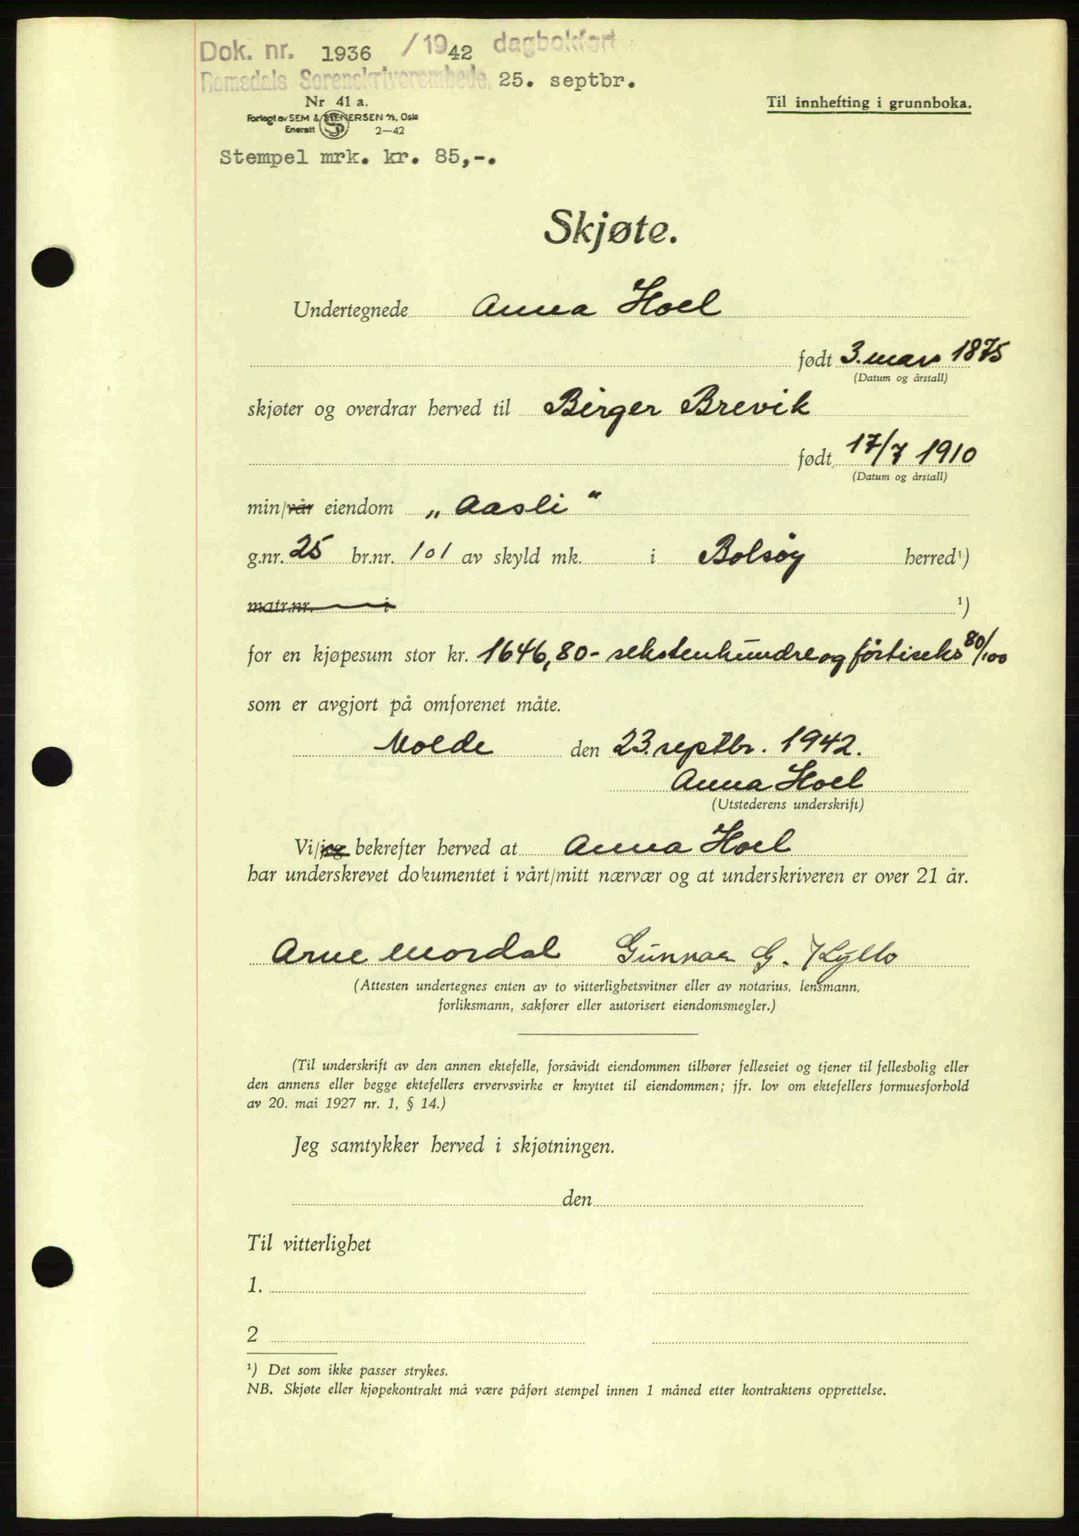 Dok. nr. 1936 /1942 dagbokført
Romsdals Sorenskriverembede, 25. septbr.
Nr 41 a.
Til innhefting i grunnboka.
Forlagt av SEM & STENERSEN A/S, Oslo
Enerett 2—42
Stempel mrk. kr. 85,-.
Skjøte.
Undertegnede Anna Hoel
født 3. mars 1875
(Datum og årstall)
skjøter og overdrar herved til Birger Brevik
født 17/7 1910
(Datum og årstall)
min/vår eiendom „Aasli“
g.nr. 25 br.nr. 101 av skyld mk. i Bolsøy herred¹)
matr.nr. i ¹)
for en kjøpesum stor kr. 1646,80 - sekstenhundreogførtiseks 80/100
som er avgjort på omforenet måte.
Molde den 23. septbr. 1942.
Anna Hoel
(Utstederens underskrift)
Vi/jeg bekrefter herved at Anna Hoel
har underskrevet dokumentet i vårt/mitt nærvær og at underskriveren er over 21 år.
Arne Mordal Gunnar G. Kyllo
(Attesten undertegnes enten av to vitterlighetsvitner eller av notarius, lensmann,
forliksmann, sakfører eller autorisert eiendomsmegler.)
(Til underskrift av den annen ektefelle, forsåvidt eiendommen tilhører felleseiet og tjener til fellesbolig eller
den annens eller begge ektefellers ervervsvirke er knyttet til eiendommen; jfr. lov om ektefellers formuesforhold
av 20. mai 1927 nr. 1, § 14.)
Jeg samtykker herved i skjøtningen.
den
Til vitterlighet
1.
2
¹) Det som ikke passer strykes.
NB. Skjøte eller kjøpekontrakt må være påført stempel innen 1 måned etter kontraktens opprettelse.